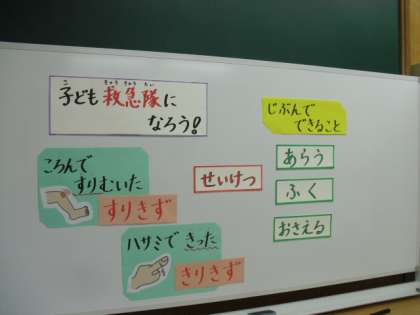 子ども救急隊に
こ きゅうきゅうたい
なろう!
ころんで
すりむいた
すりきず
ハサミできった
きりきず
せいけつ
じぶんで
できること
あらう
ふく
おさえる